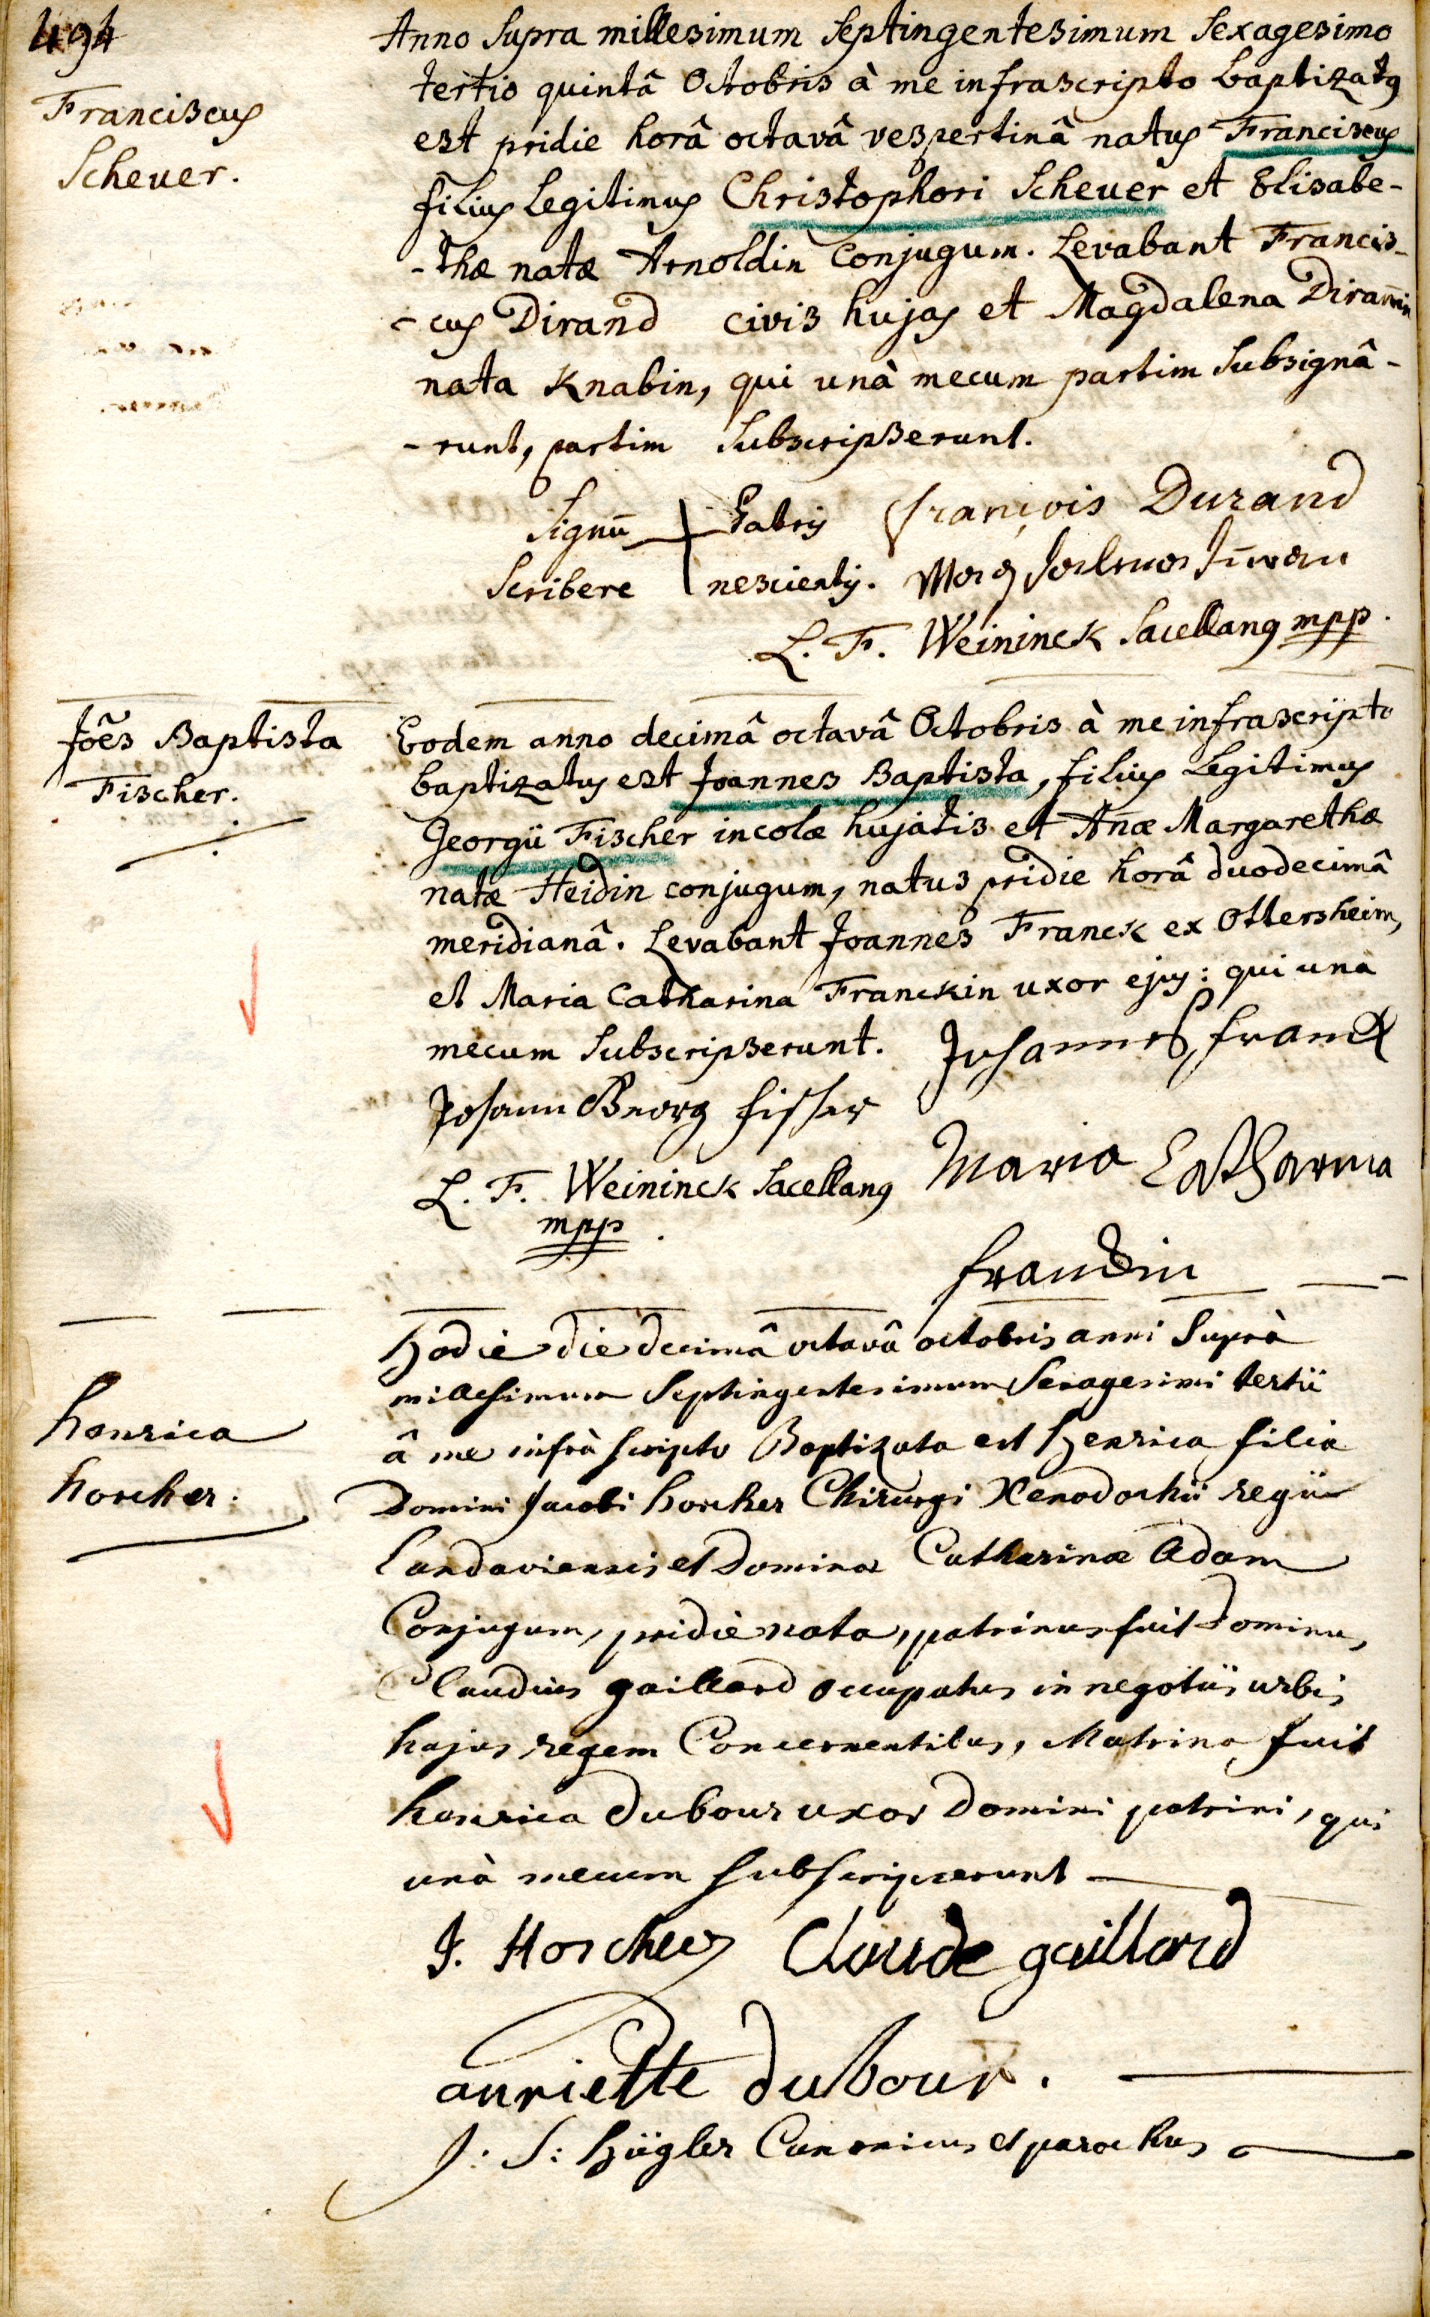 494
Franciscus
Scheuer.
Anno Supra millesimum Septingentesimum Sexagesimo
tertio quintâ Octobris à me infrascripto baptizatus
est pridie horâ octavâ vespertinâ natus Franciscus
filius Legitimus Christophori Scheuer et Elisabe-
-thæ natæ Arnoldin Conjugum. Levabant Francis-
-cus Dirand civis hujas et Magdalena Dirañin
nata Knabin, qui unà mecum partim Subsignâ-
-runt, partim Subscripserunt.
Signũ + Patris françois Durand
Scribere nescientis.
L. F. Weininck Sacellanus mpp.
Joẽs Baptista
Fischer.
Eodem anno decimâ octavâ Octobris à me infrascripto
baptizatus est Joannes Baptista, filius Legitimus
Georgii Fischer incolæ hujatis et Añæ Margarethæ
natæ Heidin conjugum, natus pridie horâ duodecimâ
meridianâ. Levabant Joannes Franck ex Ottersheim,
et Maria Catharina Franckin uxor ejus: qui una
mecum Subscripserunt. Johannes franck
Johann Georg fisher
L. F. Weininck Sacellanus Maria Catharina
mpp.
franckin
henrica
horcher.
Hodie die decimâ octavâ octobris anni Suprà
millesimum Septingentesimum Sexagesimi tertii
â me infrà scripto Baptizata est Henrica filia
Domini Jacobi horcher Chirurgi Xenodochii regii
Landaviensis et Dominæ Catharinæ Adam
Conjugum, pridie nata, patrinus fuit Dominus
Claudius gaillard occupatus in negotiis urbis
hujus regem Concernentibus, Matrina fuit
henrica dubour uxor Domini patrini, qui
unà mecum subscripserunt
J. Horcher Claude gaillard
anriette dubour.
J: S: Hügler Canonicus et parochus